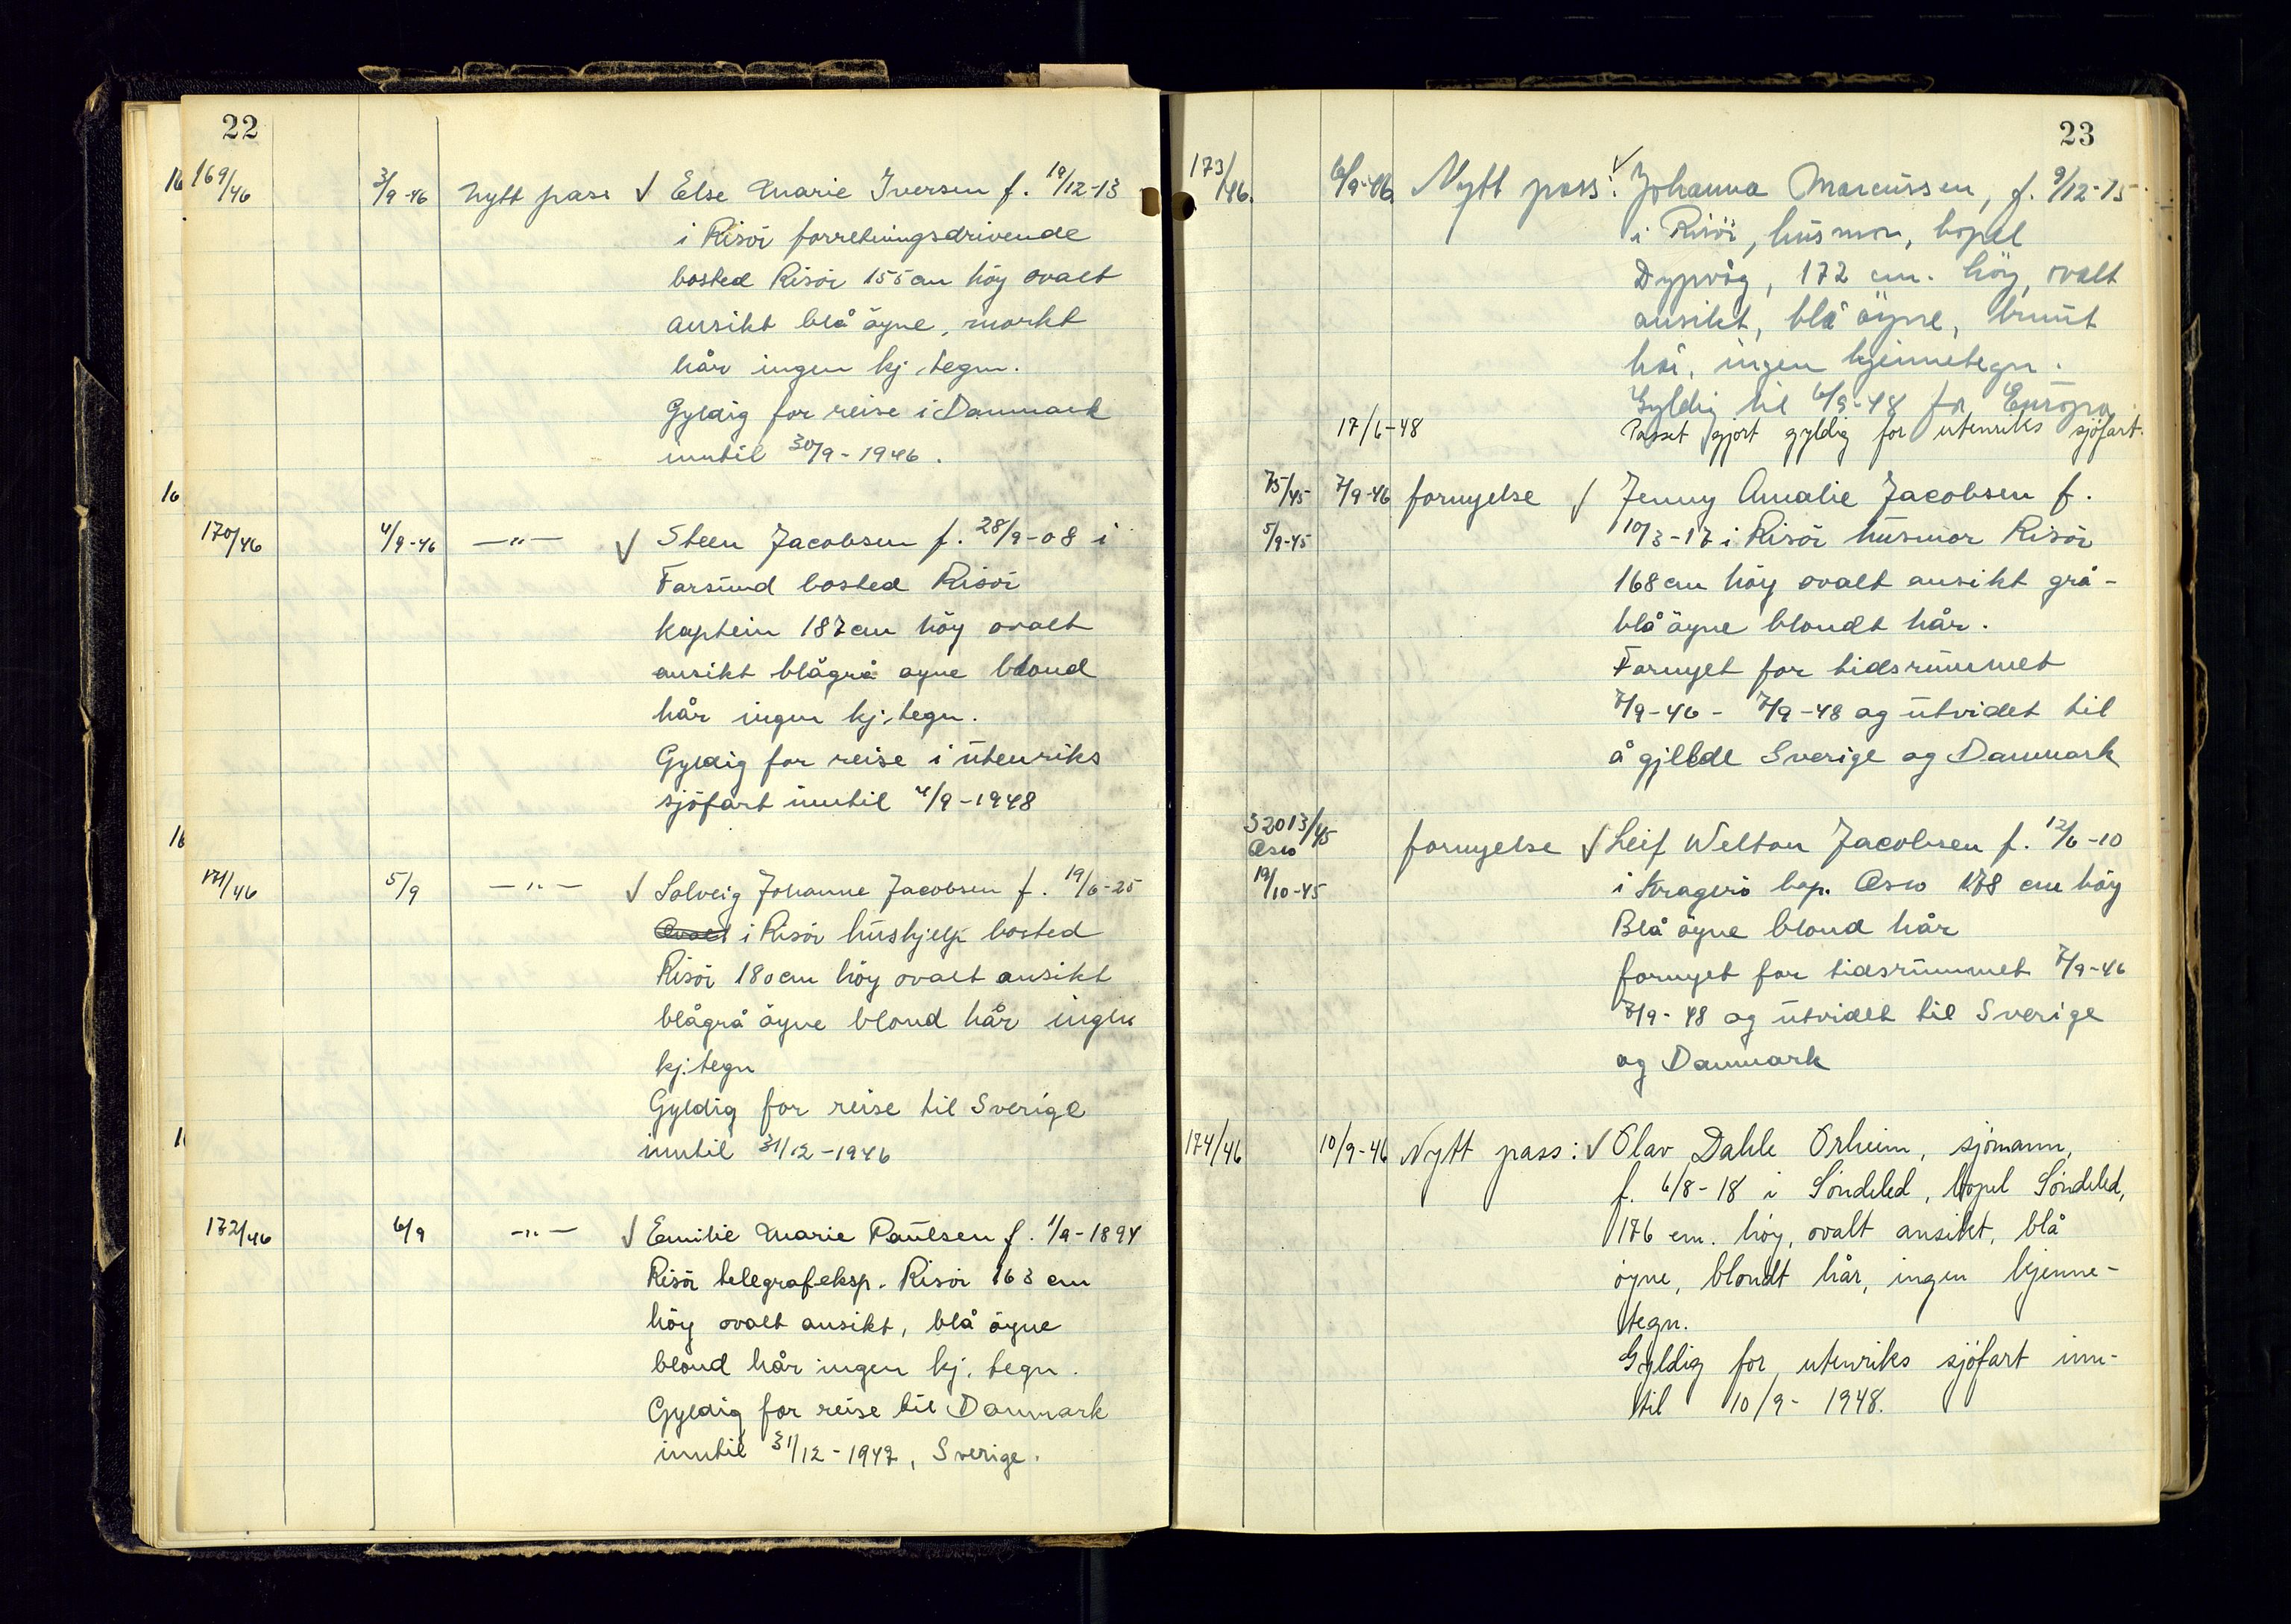 22
169/46 3/9-46 Nytt pass √ Else Marie Iversen f. 19/12-13
i Risör forretningsdrivende
bosted Risör 155 cm höy ovalt
ansikt blå öyne, mörkt
hår ingen kj.tegn.
Gyldig for reise i Danmark
inntil 30/9-1946.
170/46 4/9-46 —"— √ Steen Jacobsen f. 28/9-08 i
Farsund bosted Risör
kaptein 187 cm höy ovalt
ansikt blågrå öyne blond
hår ingen kj.tegn.
Gyldig for reise i utenriks
sjöfart inntil 4/9-1948
171/46 5/9 —"— √ Solveig Johanne Jacobsen f. 19/6-25
i Risör hushjelp bosted
Risör 180 cm höy ovalt ansikt
blågrå öyne blond hår ingen
kj.tegn
Gyldig for reise til Sverige
inntil 31/12-1946
172/46 6/9 —"— √ Emilie Marie Paulsen f. 1/9-1894
Risör telegrafeksp. Risör 163 cm
höy ovalt ansikt, blå öyne
blond hår ingen kj. tegn.
Gyldig for reise til Danmark
inntil 31/12-1947, Sverige.
23
173/46. 6/9-46. Nytt pass: √ Johanna Marcussen, f. 9/12-15
i Risör, husmor, bopel
Dypvåg, 172 cm. höy, ovalt
ansikt, blå öyne, brunt
hår, ingen kjennetegn.
Gyldig til 6/9-48 for Europa.
17/6-48 Passet gjort gyldig for utenriks sjöfart.
75/45 7/9-46 fornyelse √ Jenny Amalie Jacobsen f.
5/9-45 10/3-17 i Risör husmor Risör
168 cm höy ovalt ansikt grå-
blå öyne blondt hår.
Fornyet for tidsrummet
7/9-46 - 7/9-48 og utvidet til
å gjelde Sverige og Danmark
S2013/45 fornyelse √ Leif Welton Jacobsen f. 12/6-10
Oslo
19/10-45 i Kragerö bop. Oslo 178 cm höy
Blå öyne blond hår
fornyet for tidsrummet 7/9-46
7/9-48 og utvidet til Sverige
og Danmark
174/46 10/9-46 Nytt pass: √ Olav Dahle Orheim, sjömann,
f. 6/8-18 i Söndeled, bopel Söndeled,
176 cm. höy, ovalt ansikt, blå
öyne, blondt hår, ingen kjenne-
tegn.
Gyldig for utenriks sjöfart inn-
til 10/9-1948.